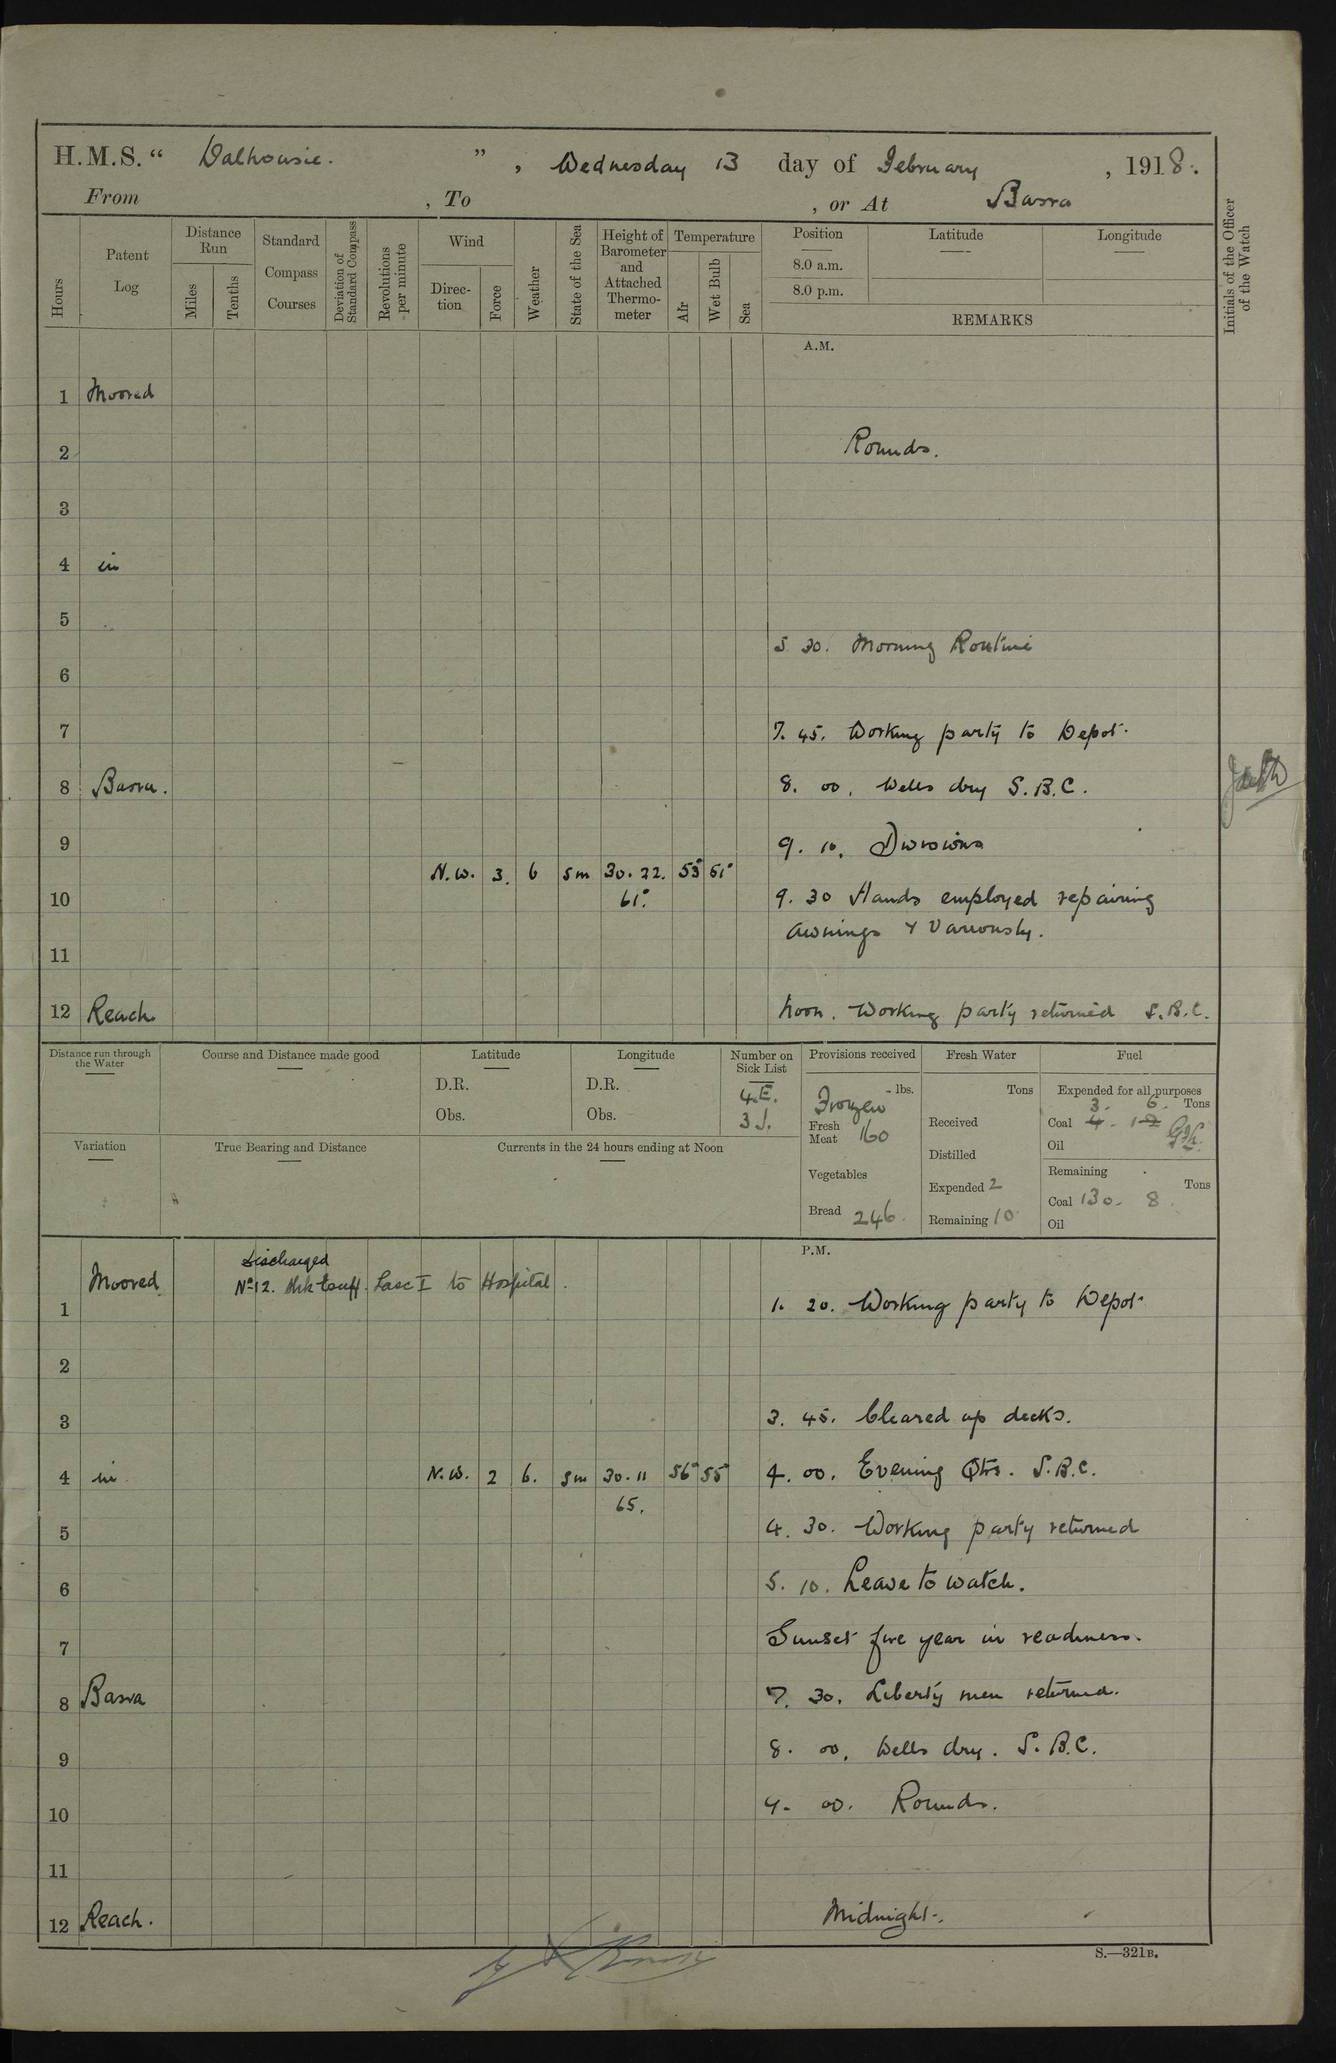 H.M.S. “ Dalhousie. ” , Wednesday 13 day of February , 1918.
From , To , or At Basra
Hours
Patent Log
Distance Run
Miles
Tenths
Standard Compass Courses
Deviation of Standard Compass
Revolutions per minute
Wind
Direction
Force
Weather
State of the Sea
Height of Barometer and Attached Thermometer
Temperature
Air
Wet Bulb
Sea
Position
8.0 a.m.
8.0 p.m.
Latitude
Longitude
REMARKS
Initials of the Officer of the Watch
A.M.
1 Moored
2 Rounds.
3
4 in
5
5 30. Morning Routine
6
7 7. 45. Working party to Depot.
8 Basra. 8. 00. Wells dry S.B.C.
9 9. 10. Divisions
N.W. 3. b sm 30.22. 53° 51°
10 61° 9. 30 Hands employed repairing
awnings & Variously.
11
12 Reach Noon. Working party returned S.B.C.
Distance run through the Water
Course and Distance made good
Latitude
D.R.
Obs.
Longitude
D.R.
Obs.
Number on Sick List
4.E.
3 J.
Provisions received
lbs.
Frozen
Fresh Meat 160
Vegetables
Bread 246.
Fresh Water
Tons
Received
Distilled
Expended 2
Remaining 10
Fuel
Expended for all purposes
3. 6. Tons
Coal 4. 12
Oil
Remaining
Tons
Coal 130. 8
Oil
Variation
True Bearing and Distance
Currents in the 24 hours ending at Noon
P.M.
Discharged
Moored No 12. Lasc I to Hospital.
1 1. 20. Working party to Depot.
2
3 3. 45. Cleared up decks.
4 in N.W. 2 b. sm 30.11 56° 55° 4. 00. Evening Qtrs. S.B.C.
65.
5 4. 30. Working party returned
6 5. 10. Leave to watch.
7 Sunset fire gear in readiness.
8 Basra 7. 30. Liberty men returned.
9 8. 00. Wells dry. S.B.C.
10 9. 00. Rounds.
11
12 Reach. Midnight.
S.—321B.